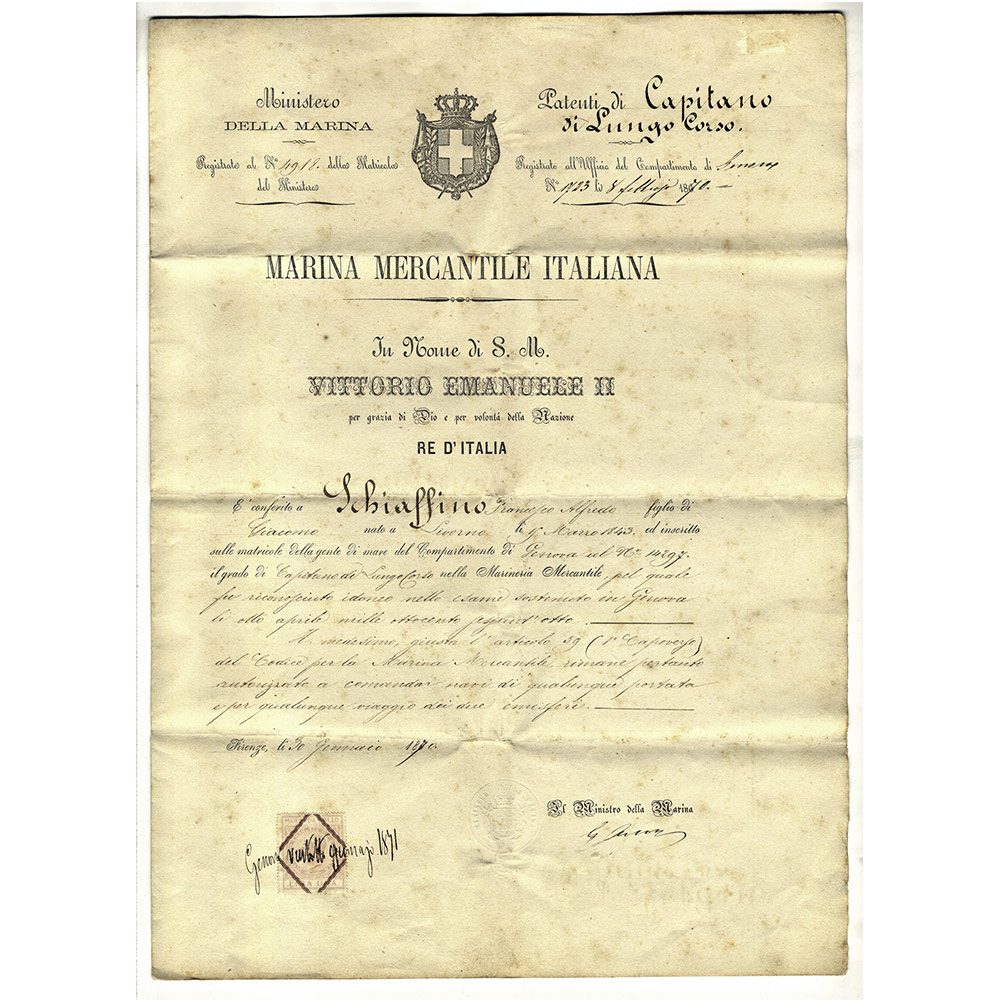 Ministero
DELLA MARINA
Registrato al N.º 4918. della Matricola
del Ministero
Patenti di Capitano
di Lungo Corso.
Registrato all'Uffizio del Compartimento di Genova
N.º 1723 li 8 febbrajo 1870.
MARINA MERCANTILE ITALIANA
In Nome di S. M.
VITTORIO EMANUELE II
per grazia di Dio e per volontà della Nazione
RE D'ITALIA
È conferito a Schiaffino Francesco Alfredo figlio di
Giacomo nato a Livorno li Marzo 1843. ed inscritto
sulle matricole della gente di mare del Compartimento di Genova al N.º 14297.
il grado di Capitano di Lungo Corso nella Marineria Mercantile, pel quale
fu riconosciuto idoneo nello esame sostenuto in Genova
li otto aprile mille ottocento sessant'otto.
Il medesimo, giusta l'articolo 59 (1º Capoverso)
del Codice per la Marina Mercantile, rimane pertanto
autorizzato a comandar navi di qualunque portata
e per qualunque viaggio dei due emisferi.
Firenze, li 30 Gennaio 1870.
Il Ministro della Marina
Genova ventotto gennajo 1871
LIRA UNA